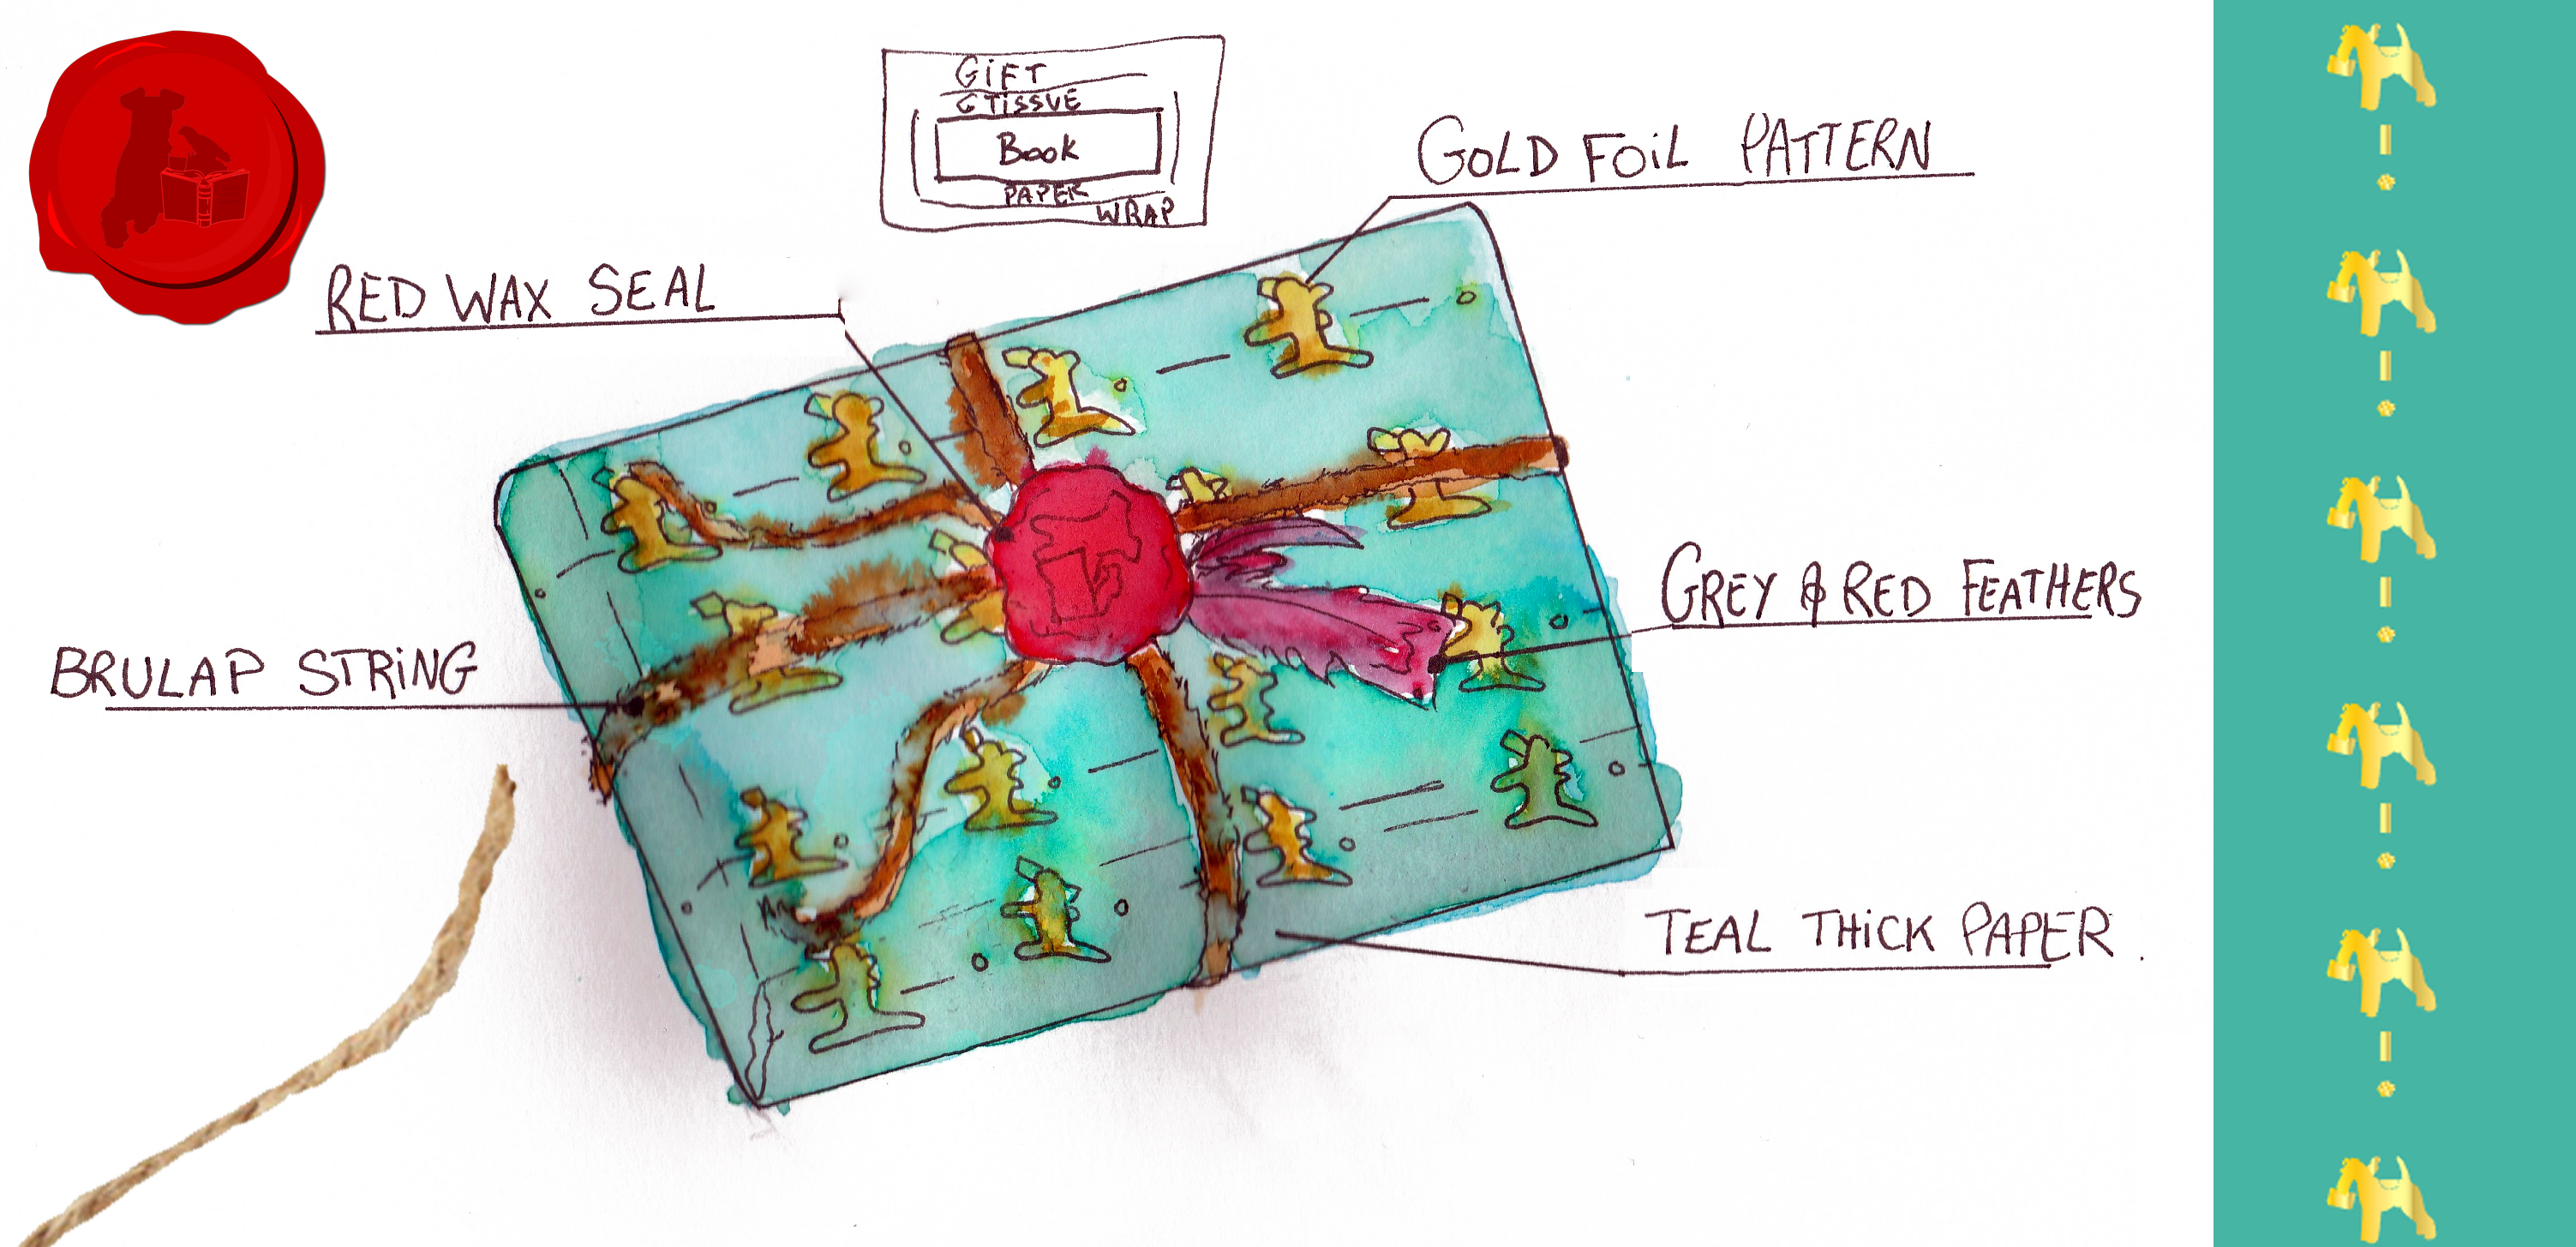 GiFT
TissuE
Book
PAPER
WRAP
GOLD FOiL PATTERN
RED WAX SEAL
GREY & RED FEATHERS
BRULAP STRiNG
TEAL THiCK PAPER.